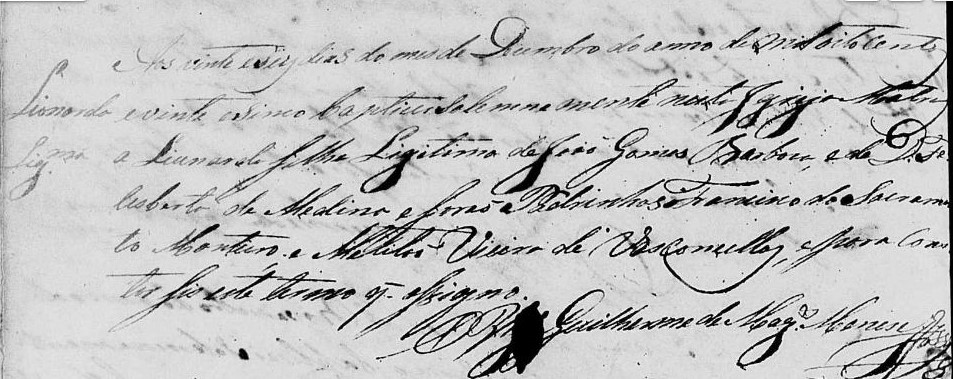 Aos vinte e seis dias do mes de Dezembro do anno de mil oito centos
Lionardo
e vinte e sinco baptizei solemnemente nesta Igreja Matriz
Leg.mo
a Lionardo filho Legitimo de João Gomes Barboza, e de D. Fe
lisberta de Medina e forão Padrinhos Francisco do Sacramen
to Monteiro, e Vieira de Vasconcellos, e para cons
tar fiz este termo q. assigno.
Guilherme de Mag.es